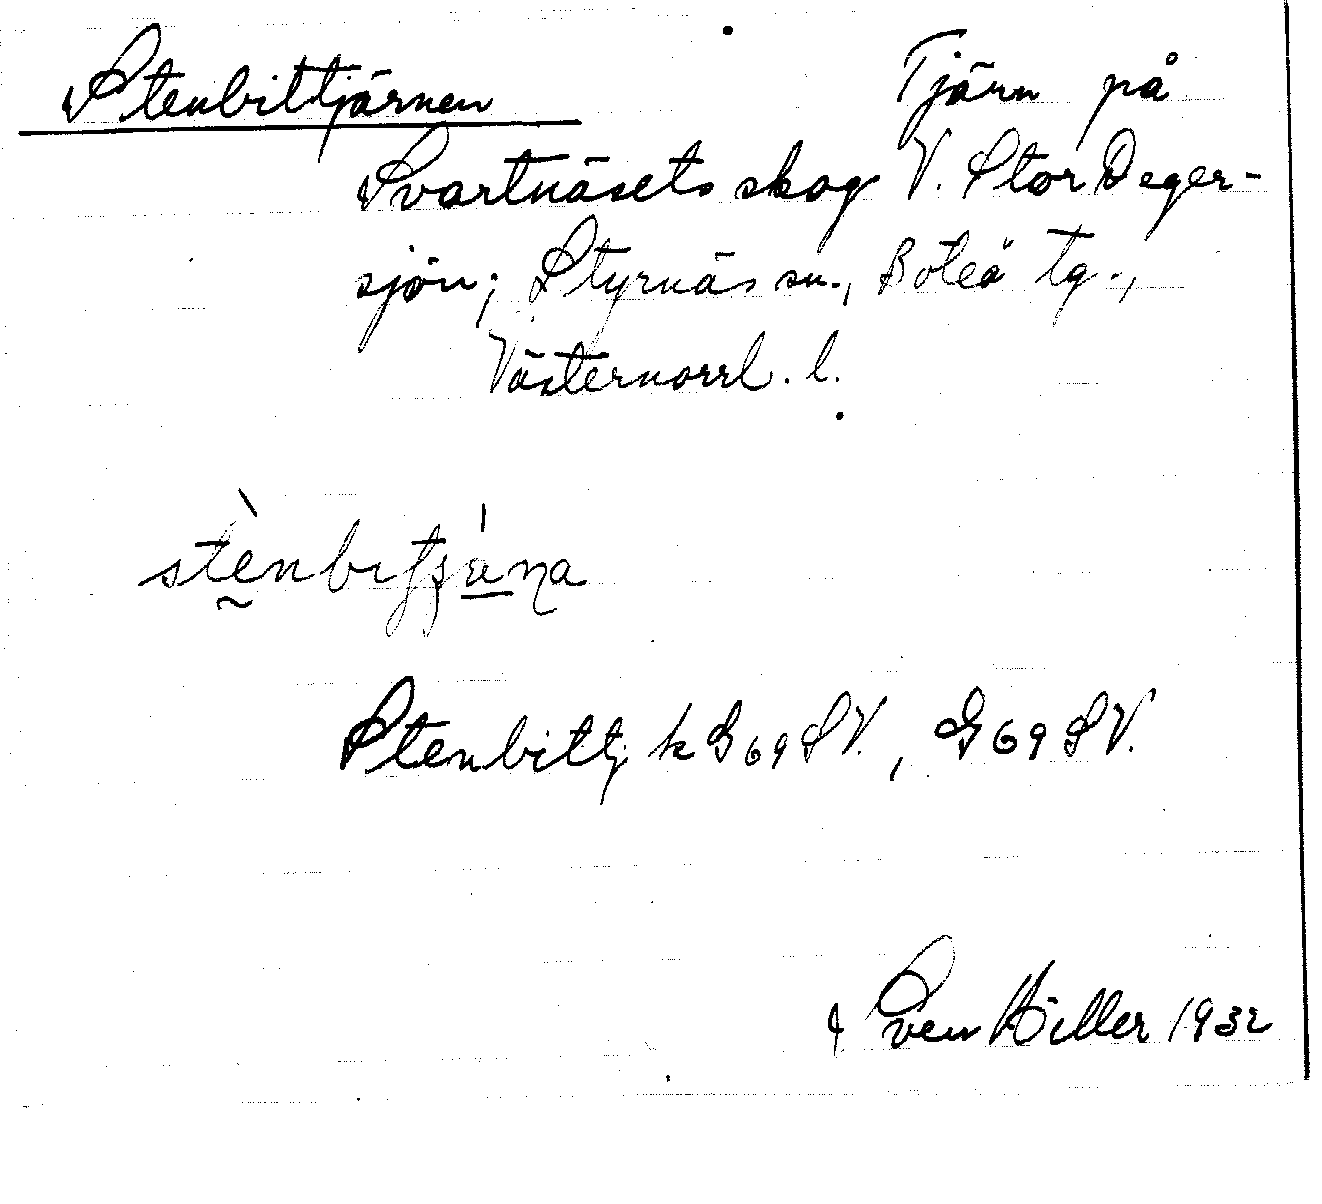 Stenbittjärnen Tjärn på
Svartnäsets skog V. Stor Deger-
sjön; Styrnäs sn., Boteå tg.,
Västernorrl. l.
Stenbittj. k G69SV., G69SV.
Sven Hiller 1932